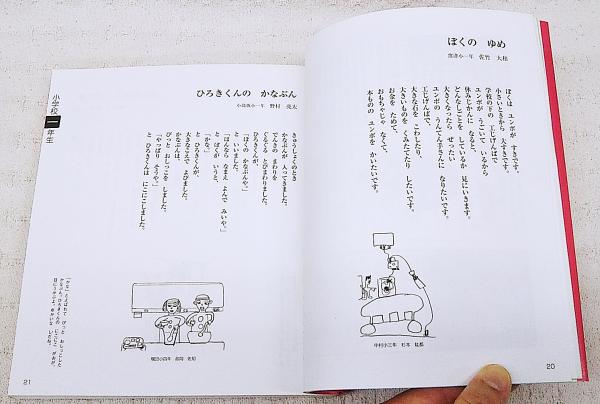 ぼくの ゆめ
窪津小一年 佐竹
ぼくは ユンボが すきです。
小さいときから 大すきです。
学校の下の 工じげんばで
ユンボが うごいて いるから
休みじかんに なると、
どんなしごとを しているか 見にいきます。
大きくなったら ぜったい
ユンボの うんてん手さんに なりたいです。
工じげんばで、
大きな石を こわしたり、
大きいものを くみたてたり したいです。
お金を ためて、
おもちゃじゃ なくて、
本ものの ユンボを かいたいです。
中村小三年 杉本
20
小学校一年生
ひろきくんの かなぶん
小高坂小一年 野村 亮太
きゅうしょくのとき
かなぶんが 入ってきました。
でんきの まわりを
ぐるぐると とびまわりました。
ひろきくんが、
「ぼくの かなぶんや。」
と いいました。
「ほんなら なまえ よんで みいや。」
と ぼくが いうと、
「かな。」
と ひろきくんが、
大きなこえで よびました。
かなぶんは、
ぴっと おしっこを しました。
「やっぱり そうや。」
と ひろきくんは にこにこしました。
「かな」とよばれて ぴっと おしっこした
かなぶん。ひろきくんの にこにこがおが、
目にうかぶよ。ゆかいな しだね。
21